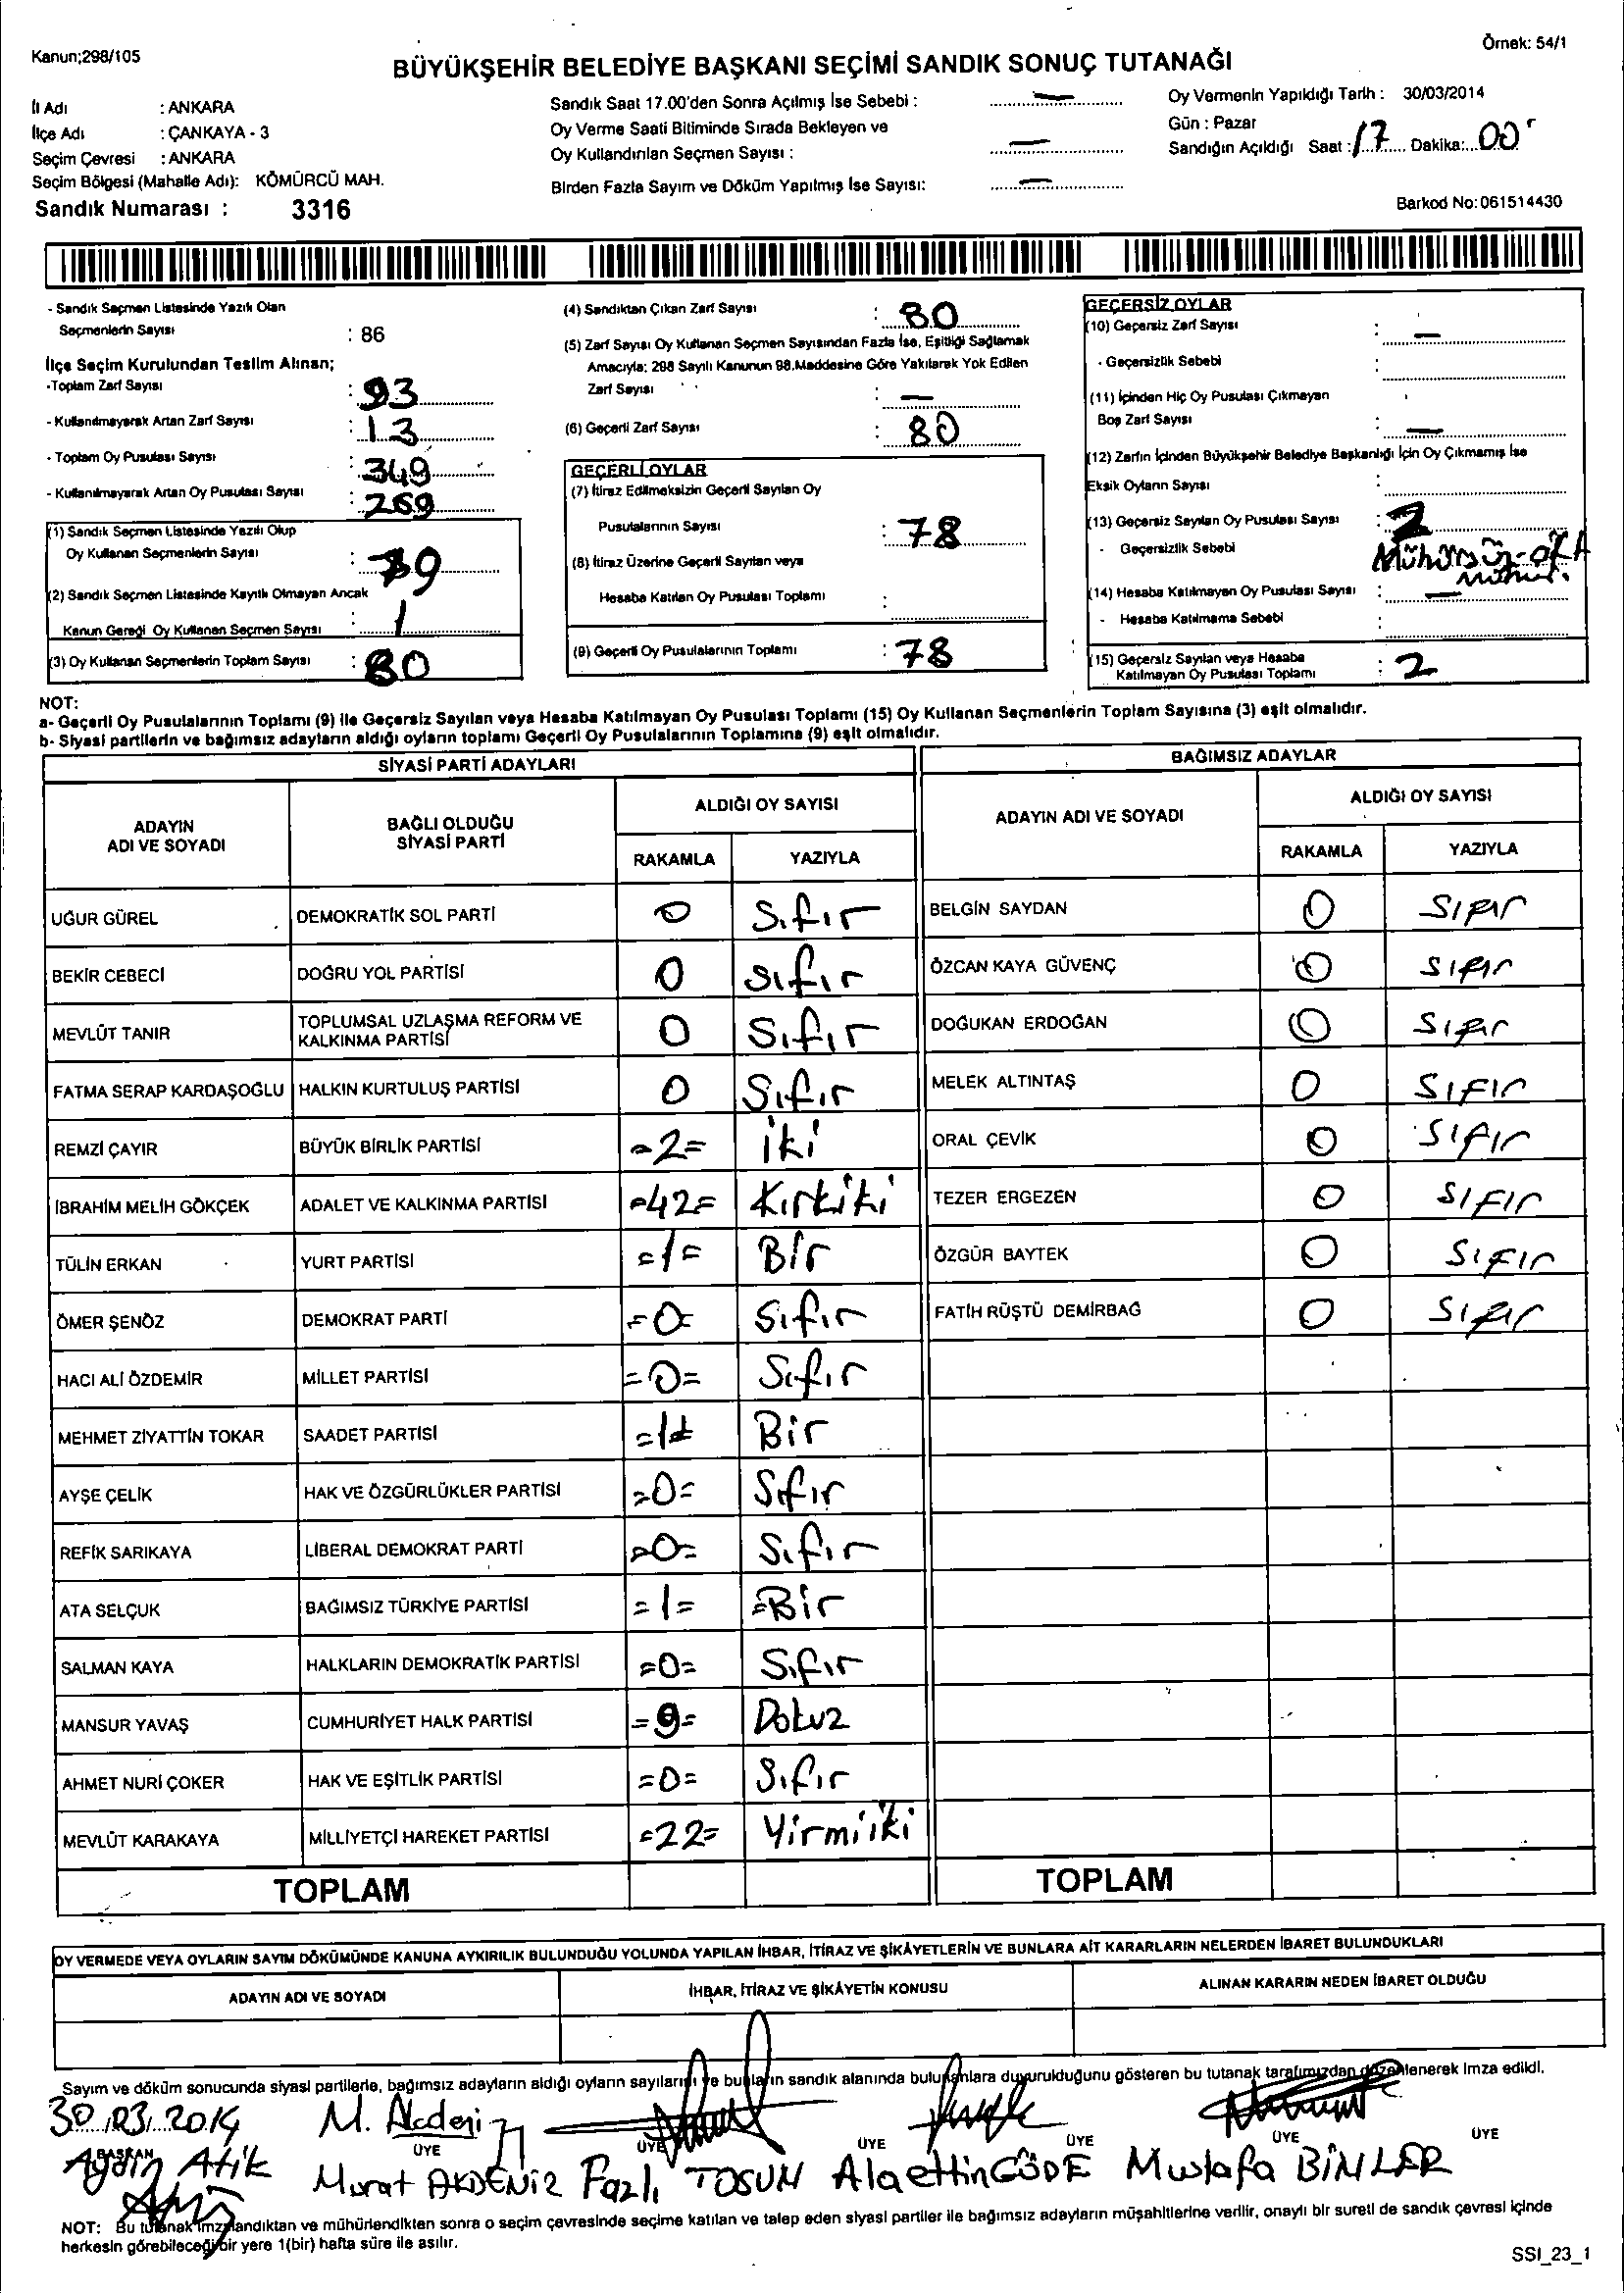 Kanun;298/105
Örnek: 54/1
BÜYÜKŞEHİR BELEDİYE BAŞKANI SEÇİMİ SANDIK SONUÇ TUTANAĞI
İl Adı : ANKARA
İlçe Adı : ÇANKAYA - 3
Seçim Çevresi : ANKARA
Seçim Bölgesi (Mahalle Adı): KÖMÜRCÜ MAH.
Sandık Numarası : 3316
Sandık Saat 17.00'den Sonra Açılmış İse Sebebi : —
Oy Verme Saati Bitiminde Sırada Bekleyen ve
Oy Kullandırılan Seçmen Sayısı : —
Birden Fazla Sayım ve Döküm Yapılmış İse Sayısı: —
Oy Vermenin Yapıldığı Tarih : 30/03/2014
Gün : Pazar
Sandığın Açıldığı Saat : 17 Dakika: 00
Barkod No:061514430
- Sandık Seçmen Listesinde Yazılı Olan
Seçmenlerin Sayısı : 86
İlçe Seçim Kurulundan Teslim Alınan;
-Toplam Zarf Sayısı : 93
- Kullanılmayarak Artan Zarf Sayısı : 13
- Toplam Oy Pusulası Sayısı : 349
- Kullanılmayarak Artan Oy Pusulası Sayısı : 269
(1) Sandık Seçmen Listesinde Yazılı Olup
Oy Kullanan Seçmenlerin Sayısı : 79
(2) Sandık Seçmen Listesinde Kayıtlı Olmayan Ancak
Kanun Gereği Oy Kullanan Seçmen Sayısı : 1
(3) Oy Kullanan Seçmenlerin Toplam Sayısı : 80
(4) Sandıktan Çıkan Zarf Sayısı : 80
(5) Zarf Sayısı Oy Kullanan Seçmen Sayısından Fazla İse, Eşitliği Sağlamak
Amacıyla; 298 Sayılı Kanunun 98.Maddesine Göre Yakılarak Yok Edilen
Zarf Sayısı : —
(6) Geçerli Zarf Sayısı : 80
GEÇERLİ OYLAR
(7) İtiraz Edilmeksizin Geçerli Sayılan Oy
Pusulalarının Sayısı : 78
(8) İtiraz Üzerine Geçerli Sayılan veya
Hesaba Katılan Oy Pusulası Toplamı :
(9) Geçerli Oy Pusulalarının Toplamı : 78
GEÇERSİZ OYLAR
(10) Geçersiz Zarf Sayısı : —
- Geçersizlik Sebebi :
(11) İçinden Hiç Oy Pusulası Çıkmayan
Boş Zarf Sayısı : —
(12) Zarfın İçinden Büyükşehir Belediye Başkanlığı İçin Oy Çıkmamış İse
Eksik Oyların Sayısı :
(13) Geçersiz Sayılan Oy Pusulası Sayısı : 2
- Geçersizlik Sebebi Mühürsüz-
(14) Hesaba Katılmayan Oy Pusulası Sayısı : —
- Hesaba Katılmama Sebebi :
(15) Geçersiz Sayılan veya Hesaba
Katılmayan Oy Pusulası Toplamı : 2
NOT:
a- Geçerli Oy Pusulalarının Toplamı (9) ile Geçersiz Sayılan veya Hesaba Katılmayan Oy Pusulası Toplamı (15) Oy Kullanan Seçmenlerin Toplam Sayısına (3) eşit olmalıdır.
b- Siyasi partilerin ve bağımsız adayların aldığı oyların toplamı Geçerli Oy Pusulalarının Toplamına (9) eşit olmalıdır.
SİYASİ PARTİ ADAYLARI
ADAYIN ADI VE SOYADI BAĞLI OLDUĞU SİYASİ PARTİ ALDIĞI OY SAYISI
RAKAMLA YAZIYLA
UĞUR GÜREL DEMOKRATİK SOL PARTİ 0 Sıfır
BEKİR CEBECİ DOĞRU YOL PARTİSİ 0 Sıfır
MEVLÜT TANIR TOPLUMSAL UZLAŞMA REFORM VE KALKINMA PARTİSİ 0 Sıfır
FATMA SERAP KARDAŞOĞLU HALKIN KURTULUŞ PARTİSİ 0 Sıfır
REMZİ ÇAYIR BÜYÜK BİRLİK PARTİSİ =2= iki
İBRAHİM MELİH GÖKÇEK ADALET VE KALKINMA PARTİSİ =42= Kırkiki
TÜLİN ERKAN YURT PARTİSİ =1= Bir
ÖMER ŞENÖZ DEMOKRAT PARTİ =0= Sıfır
HACI ALİ ÖZDEMİR MİLLET PARTİSİ =0= Sıfır
MEHMET ZİYATTİN TOKAR SAADET PARTİSİ =1= Bir
AYŞE ÇELİK HAK VE ÖZGÜRLÜKLER PARTİSİ =0= Sıfır
REFİK SARIKAYA LİBERAL DEMOKRAT PARTİ =0= Sıfır
ATA SELÇUK BAĞIMSIZ TÜRKİYE PARTİSİ =1= =Bir
SALMAN KAYA HALKLARIN DEMOKRATİK PARTİSİ =0= Sıfır
MANSUR YAVAŞ CUMHURİYET HALK PARTİSİ =9= Dokuz
AHMET NURİ ÇOKER HAK VE EŞİTLİK PARTİSİ =0= Sıfır
MEVLÜT KARAKAYA MİLLİYETÇİ HAREKET PARTİSİ =22= Yirmiiki
TOPLAM
BAĞIMSIZ ADAYLAR
ADAYIN ADI VE SOYADI ALDIĞI OY SAYISI
RAKAMLA YAZIYLA
BELGİN SAYDAN 0 SIFIR
ÖZCAN KAYA GÜVENÇ 0 SIFIR
DOĞUKAN ERDOĞAN 0 SIFIR
MELEK ALTINTAŞ 0 SIFIR
ORAL ÇEVİK 0 SIFIR
TEZER ERGEZEN 0 SIFIR
ÖZGÜR BAYTEK 0 SIFIR
FATİH RÜŞTÜ DEMİRBAĞ 0 SIFIR
TOPLAM
OY VERMEDE VEYA OYLARIN SAYIM DÖKÜMÜNDE KANUNA AYKIRILIK BULUNDUĞU YOLUNDA YAPILAN İHBAR, İTİRAZ VE ŞİKÂYETLERİN VE BUNLARA AİT KARARLARIN NELERDEN İBARET BULUNDUKLARI
ADAYIN ADI VE SOYADI İHBAR, İTİRAZ VE ŞİKÂYETİN KONUSU ALINAN KARARIN NEDEN İBARET OLDUĞU
Sayım ve döküm sonucunda siyasi partilerle, bağımsız adayların aldığı oyların sayılarını ve bunların sandık alanında bulunanlara duyurulduğunu gösteren bu tutanak tarafımızdan düzenlenerek imza edildi.
30.03.2014 M. Akdeniz
BAŞKAN ÜYE ÜYE ÜYE ÜYE ÜYE ÜYE
Aydın Atik Murat AKDENİZ Fazlı TOSUN Alaettin GÖDE Mustafa BİNLER
NOT: Bu tutanak imzalandıktan ve mühürlendikten sonra o seçim çevresinde seçime katılan ve talep eden siyasi partiler ile bağımsız adayların müşahitlerine verilir, onaylı bir sureti de sandık çevresi içinde
herkesin görebileceği bir yere 1(bir) hafta süre ile asılır.
SSI_23_1